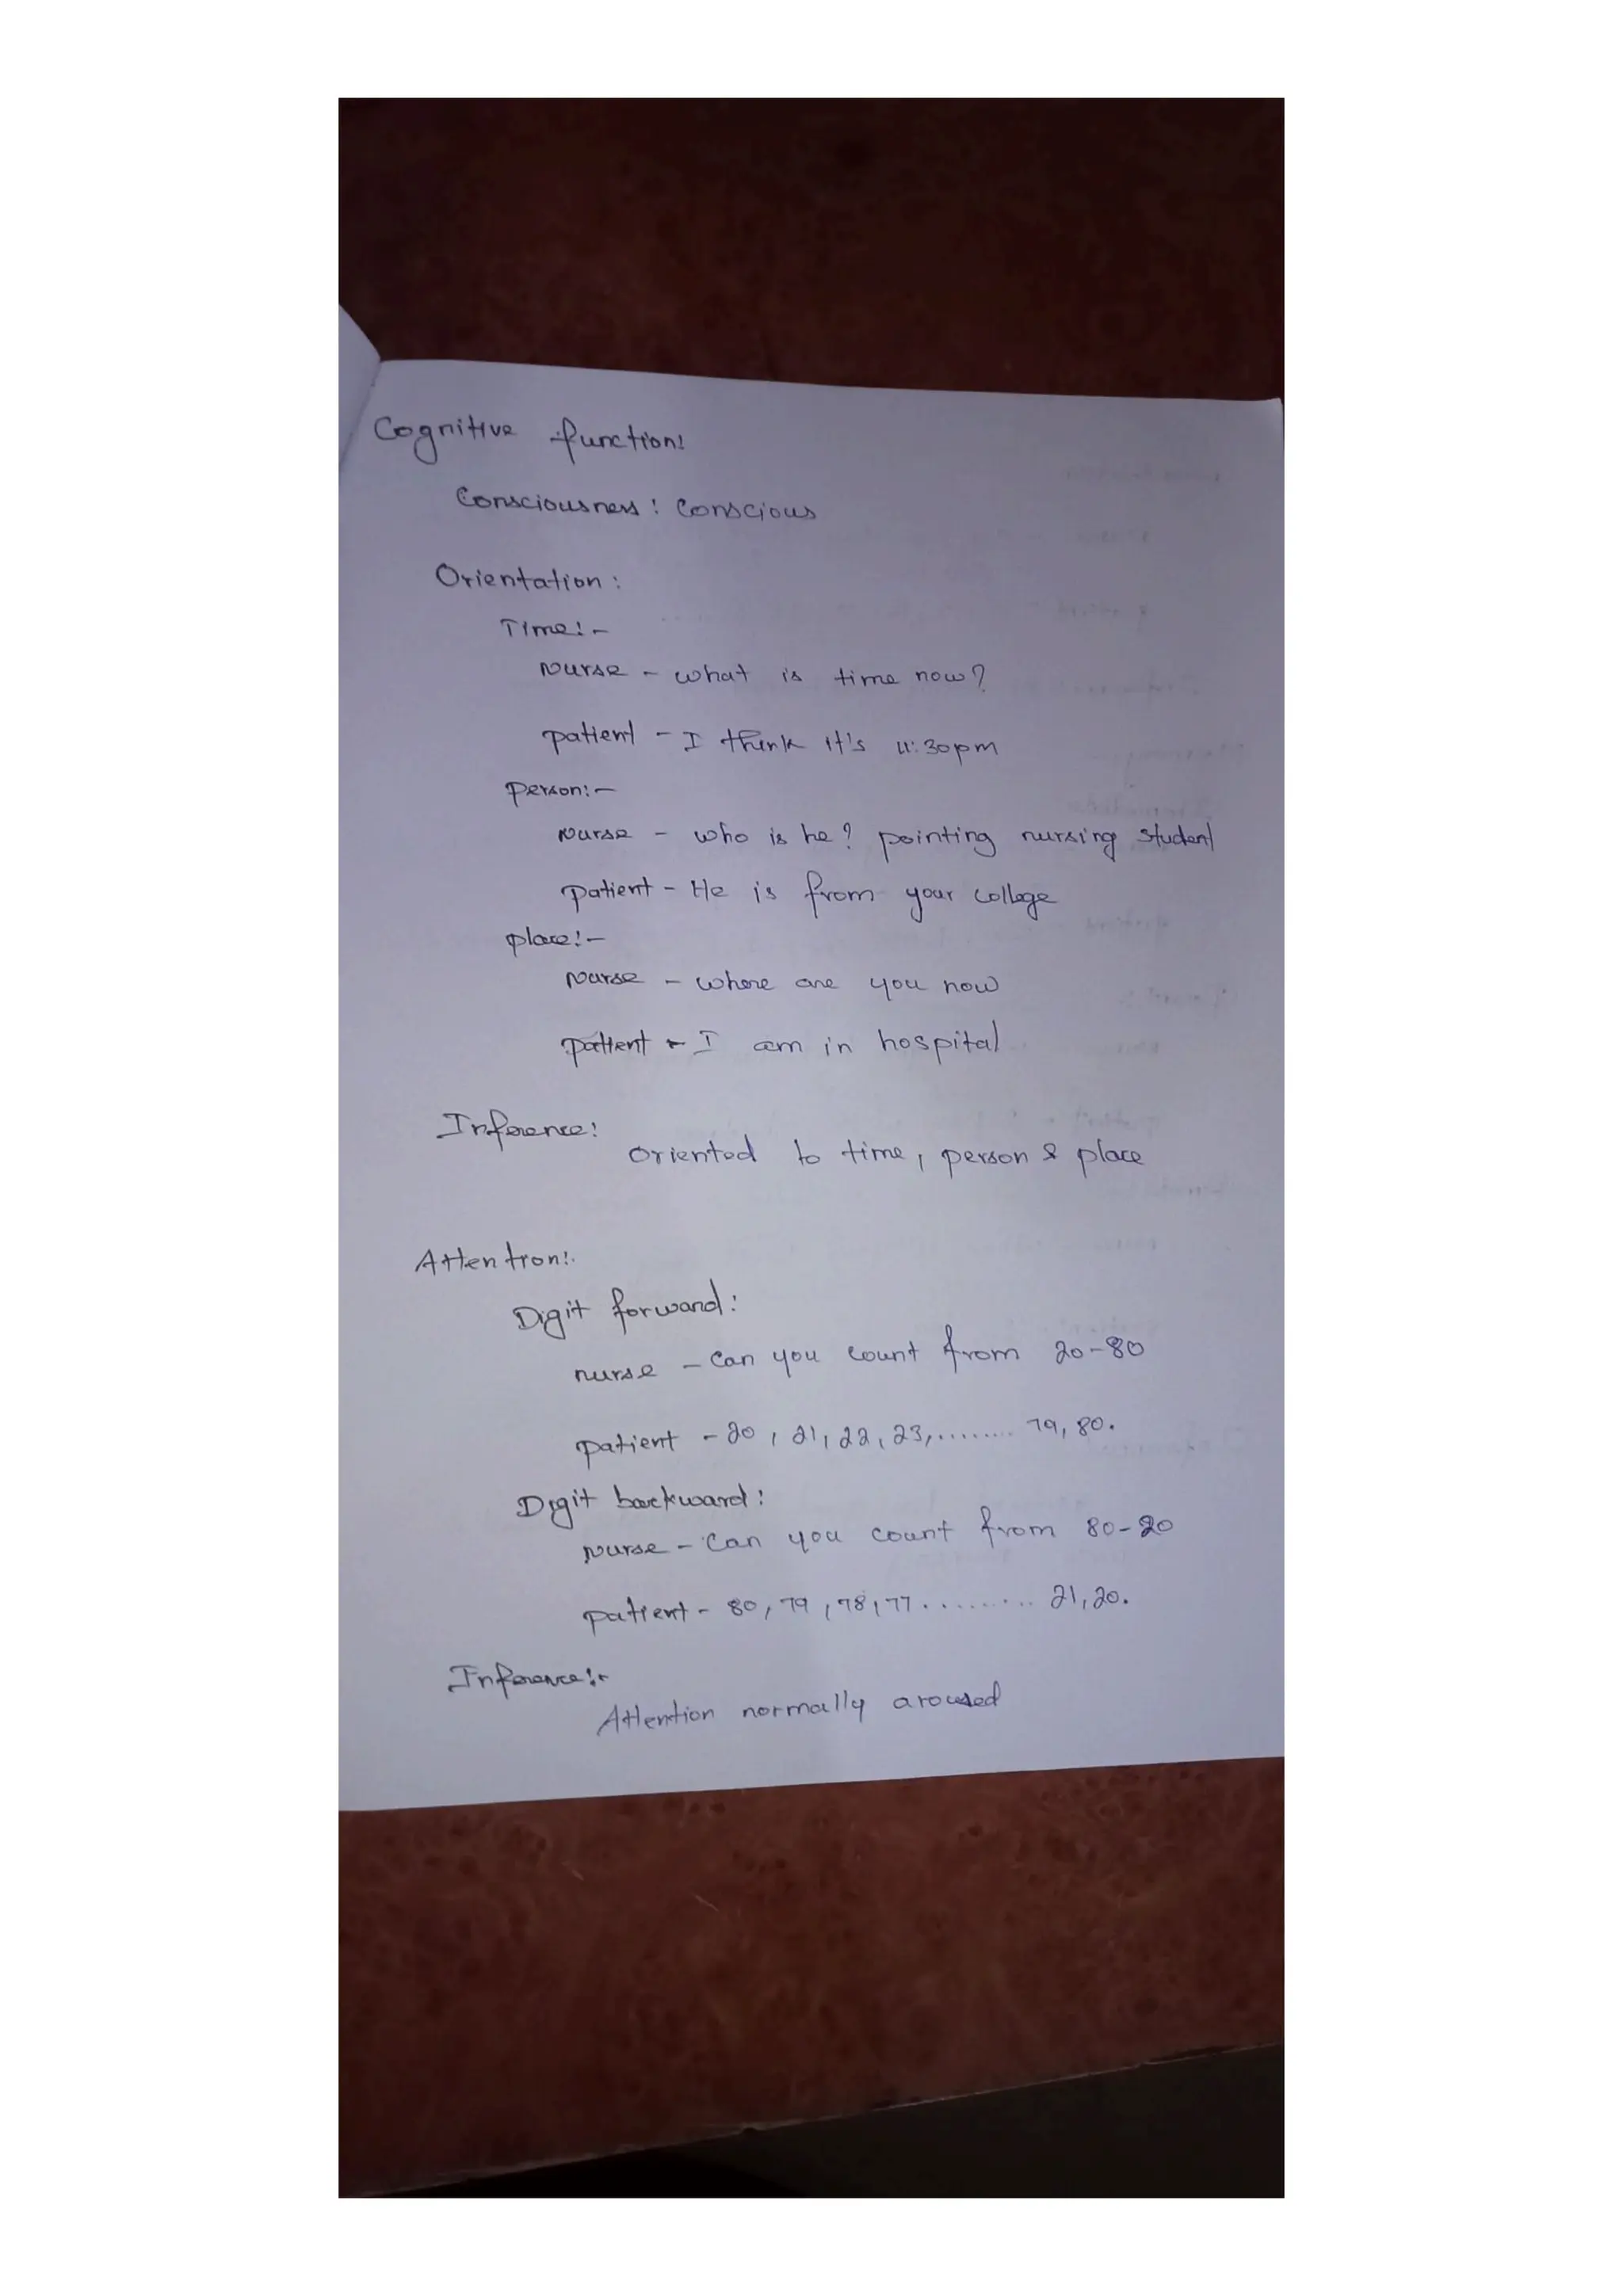 Cognitive function:
Consciousness: Conscious
Orientation:
Time:-
Nurse - what is time now?
patient - I think it's 11:30pm
person:-
Nurse - who is he? pointing nursing student
patient - He is from your college
place:-
Nurse - where are you now
patient - I am in hospital
Inference:
oriented to time, person & place
Attention:-
Digit forward:
nurse - Can you count from 20-80
patient - 20, 21, 22, 23,......... 79, 80.
Digit backward:
Nurse - Can you count from 80-20
patient - 80, 79, 78, 77.......... 21, 20.
Inference:-
Attention normally aroused